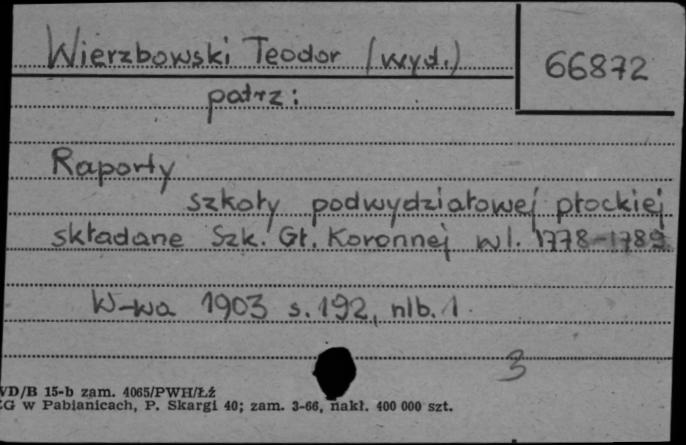 Wierzbowski Teodor (wyd.)
66872
patrz:
Raporty
szkoły podwydziałowej płockiej
składane Szk. Gł. Koronnej w l. 1778-1789
W-wa 1903 s. 192, nlb. 1
3
WD/B 15-b zam. 4065/PWH/Łź
ZG w Pabianicach, P. Skargi 40; zam. 3-66, nakł. 400 000 szt.